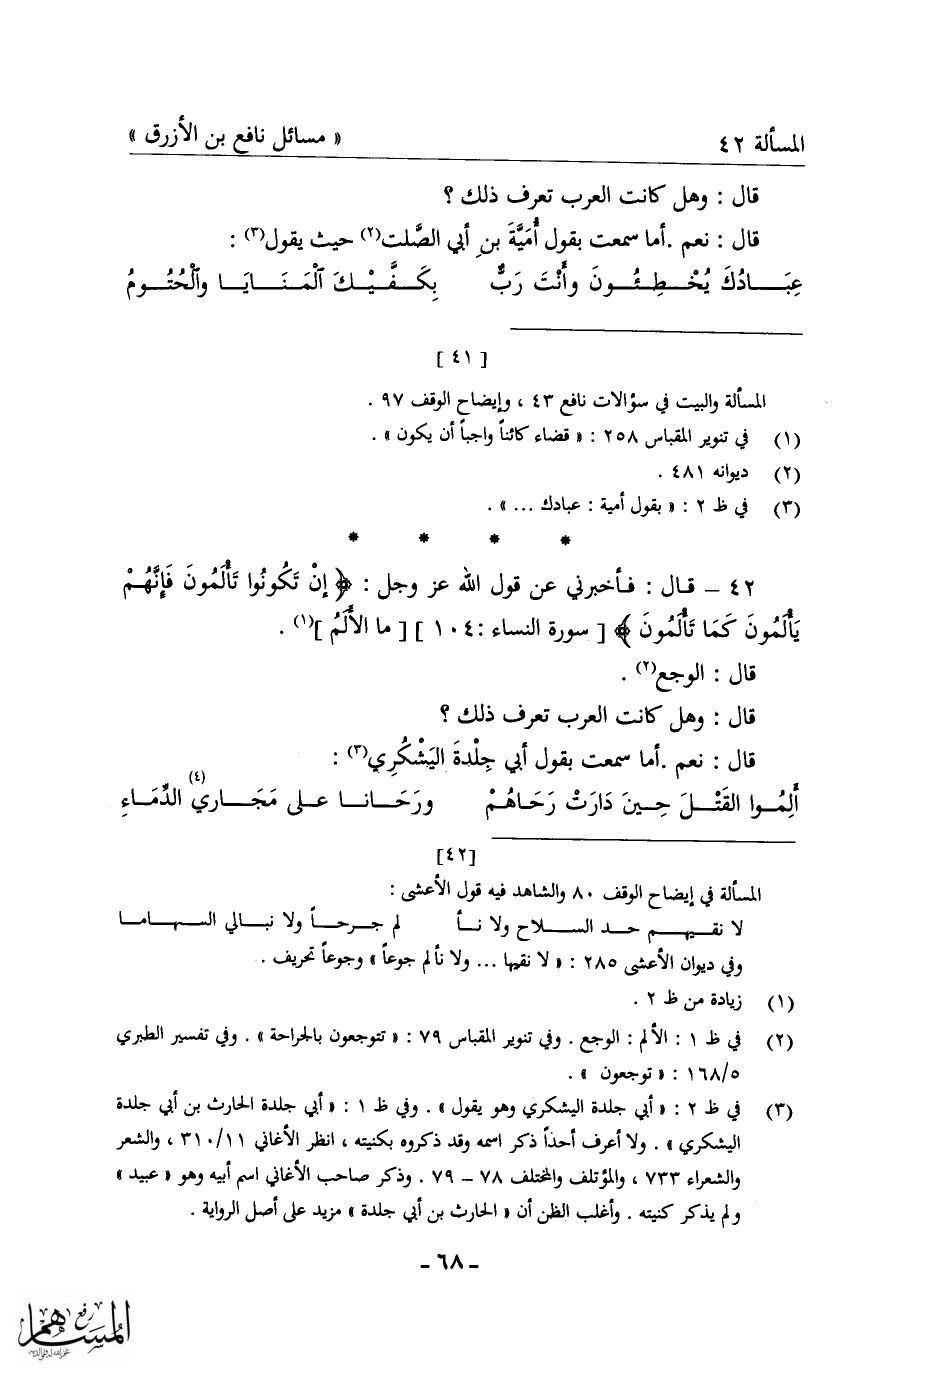 المسألة ٤٢ « مسائل نافع بن الأزرق »
قال : وهل كانت العرب تعرف ذلك ؟
قال : نعم .أما سمعت بقول أُمَيَّةَ بنِ أبي الصَّلت(٢) حيث يقول(٣) :
عِبَـــادُكَ يُخْـــطِـئُـــونَ وأَنْتَ رَبٌّ بِكَـــفَّـيْـــكَ الْمَـنَـــايَـــا والْحُتُـــومُ
[ ٤١ ]
المسألة والبيت في سؤالات نافع ٤٣ ، وإيضاح الوقف ٩٧ .
(١) في تنوير المقباس ٢٥٨ : « قضاء كائناً واجباً أن يكون » .
(٢) ديوانه ٤٨١ .
(٣) في ظ ٢ : « بقول أمية : عبادك ... » .
* * * *
٤٢ ــ قـال : فـأخبرني عن قول الله عز وجل : ﴿ إنْ تَكُونُوا تَأْلَمُونَ فَإِنَّهُـمْ
يَأْلَمُونَ كَمَا تَأْلَمُونَ ﴾ [ سورة النساء :١٠٤ ] [ ما الأَلَمُ ](١) .
قال : الوجع(٢) .
قال : وهل كانت العرب تعرف ذلك ؟
قال : نعم .أما سمعت بقول أبي جِلْدةَ اليَشْكُرِي(٣) :
أَلِمُـوا القَتْـلَ حِـينَ دَارَتْ رَحَاهُـمْ ورَحَـانـا عـلى مَجَـارِي(٤) الدِّمَـاءِ
[٤٢]
المسألة في إيضاح الوقف ٨٠ والشاهد فيه قول الأعشى :
لا نقيهـم حـد السـلاح ولا نـأ لم جـرحـاً ولا نبـالي السهـامـا
وفي ديوان الأعشى ٢٨٥ : « لا نقيها ... ولا نألم جوعاً » وجوعاً تحريف .
(١) زيادة من ظ ٢ .
(٢) في ظ ١ : الألم : الوجع . وفي تنوير المقباس ٧٩ : « تتوجعون بالجراحة » . وفي تفسير الطبري
١٦٨/٥ : « توجعون » .
(٣) في ظ ٢ : « أبي جلدة اليشكري وهو يقول » . وفي ظ ١ : « أبي جلدة الحارث بن أبي جلدة
اليشكري » . ولا أعرف أحداً ذكر اسمه وقد ذكروه بكنيته ، انظر الأغاني ٣١٠/١١ ، والشعر
والشعراء ٧٣٣ ، والمؤتلف والمختلف ٧٨ ــ ٧٩ . وذكر صاحب الأغاني اسم أبيه وهو « عبيد »
ولم يذكر كنيته . وأغلب الظن أن « الحارث بن أبي جلدة » مزيد على أصل الرواية .
ـ ٦٨ ـ
رفع
المساهم